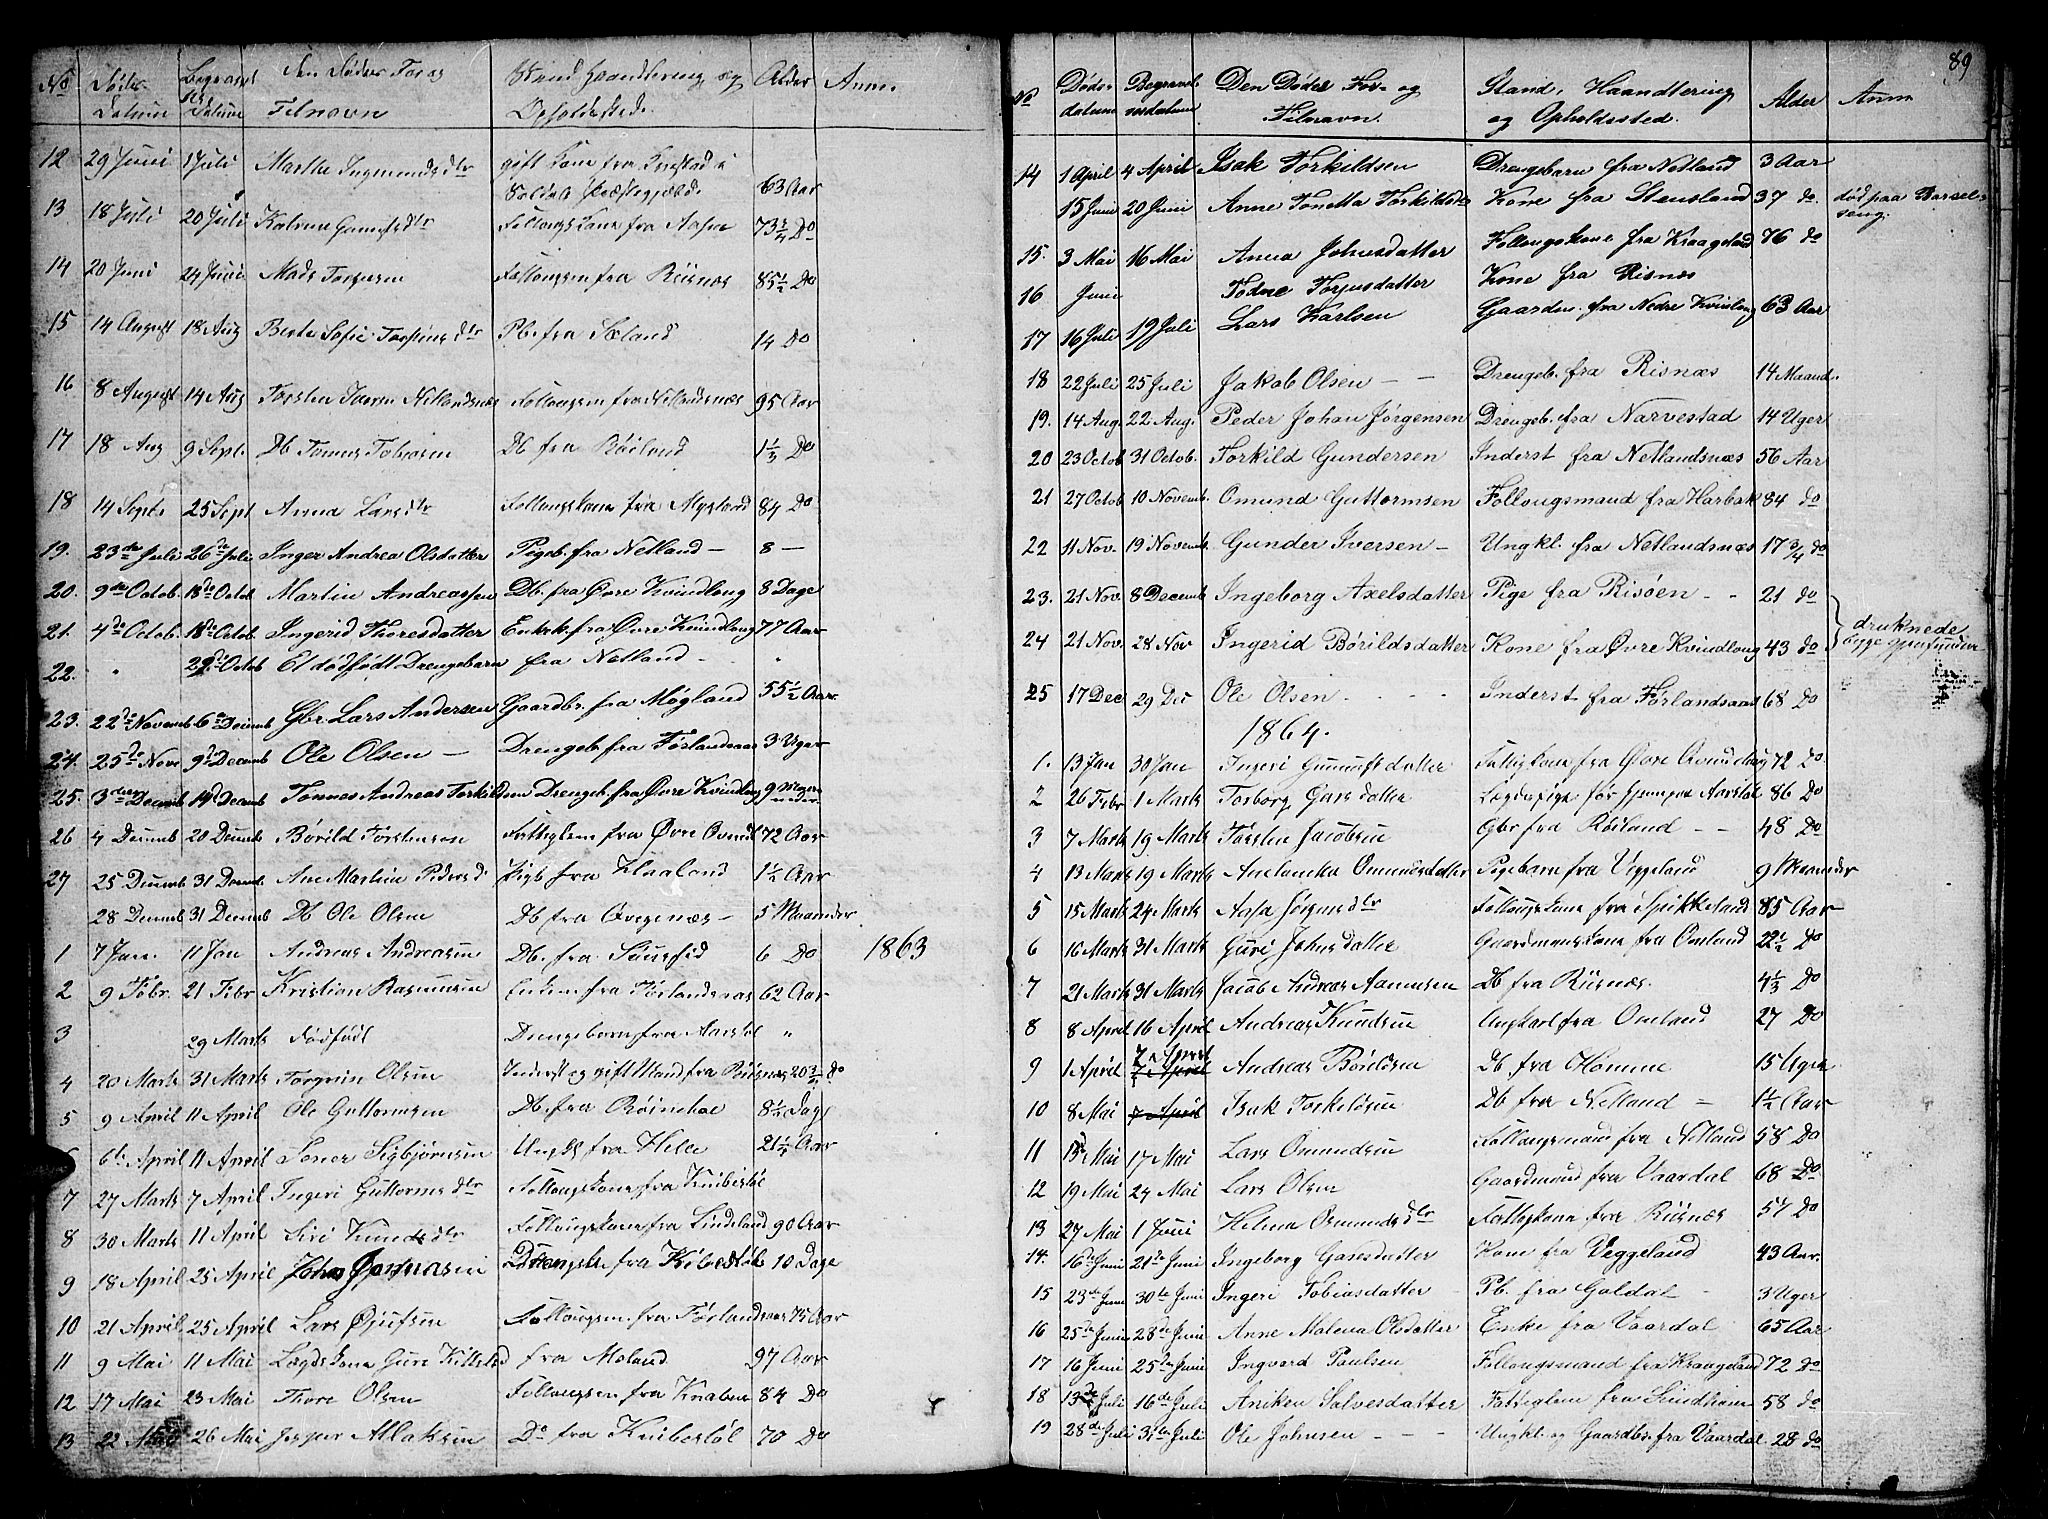 No Døds- Datum Begravelses Datum Den Dødes For og Tilnavn Stand Haandtering og Opholdssted. Alder Anm.
12 29 Juni 1 Juli Marthe Ingmundsdtr gift Kone fra
63 Aar
13 18 Juli 20 Juli Follougskone fra 73 3/4 Do
14 20 Juni 24 Juni Mads Follougsm fra Risnæs 85 1/2 Do
15 14 August 18 Aug Berte Sofie Torstensdtr Pb. fra Sæland 14 Do
16 8 August 14 Aug Torsten Netlandsnæs Follougsm fra Netlandsnæs 95 Aar
17 18 Aug 9 Sept. Db Tønnes Tobiasen Db fra Röiland 1 1/3 Do
18 14 Sept. 25 Sept Anna Larsdtr Follougskone fra Mygland 84 Do
19. 23de Juli 26de Juli Inger Andrea Olsdatter Pigeb. fra Netland - 8 -
20. 9de Octob. 18de Octob Martin Andreassen Db. fra Øvre Kvindlog 8 Dage
21. 4de Octob. 18de Octob. Ingerid Thoresdatter Enkek. fra Øvre Kvindlog 77 Aar
22. " 22de Octob Et dødfødt Drengebarn fra Netland - "
23. 22de Novemb 6te Decemb Gbr. Lars Andersen Gaardbr. fra Møgland 55 1/2 Aar.
24. 25de Nove 9de Decemb Ole Olsen - Drengeb. fra Førlandsaas 3 Uger
25. 3die Decemb 14de Decemb Tønnes Andreas Torkildsen Drengeb. fra Øvre Kvindlog 9 Maaneder
26 4 Decemb 20 Decemb Børild Torstensen Fattiglem fra Øvre 72 Aar
27 25 Decemb 31 Decemb Ane Martine Pedersd Pigb fra Haaland 1 1/2 Aar
28 Decemb 31 Decemb Db Ole Olsen Db fra - 5 Maaneder
1 7 Jan. 11 Jan Andreas Andreasen Db. fra 6 Do 1863
2 9 Febr. 21 Febr Kristian Rasmusen fra Førlandsaas 62 Aar
3 29 Marts Dødfødt Drengebarn fra Aarstøl "
4 20 Marts 31 Marts Torgrim Olsen Inderst og gift Mand fra Risnæs 20 3/4 Do
5 9 April 11 April Ole Guttormsen Db. fra 8 1/2 Dage
6te April 11 April Sigbjørnsen Ungkl fra Helle 21 1/4 Aar
7 27 Marts 7 April Ingeri Guttormsdtr Follougskone fra Knibestøl
8 30 Marts 11 April Siri Knudsdtr Follougskone fra Lindeland 90 Aar
9 18 April 25 April John fra 10 Dage
10 21 April 25 April Lars Follougsm. fra Førlandsaas 75 Aar
11 9 Mai 11 Mai Lægdskone fra Moland 97 Aar
12 17 Mai 23 Mai Thore Olsen Follougsm fra Knaben 84 Do
13 22 Mai 26 Mai Jesper Do fra Knibestøl 70 Do
89
No Dødsdatum Begravelsesdatum Den Dødes For- og Tilnavn. Stand, Haandtering og Opholdssted. Alder Anm
14 1 April 4 April Isak Torkildsen Drengebarn fra Netland 3 Aar
15 Juni 20 Juni Anne Tonetta Torkildsdtr Kone fra Stensland 37 do. død paa Barselseng.
15. 3 Mai 16 Mai Anna Johnsdatter Follougskone fra Kraageland 76 do
16 Juni Todne Torjusdatter Kone fra Risnæs
17 16 Juli 19 Juli Lars Karlsen Gaardm. fra Nedre Kvinlog 63 Aar
18 22 Juli 25 Juli Jakob Olsen - - Drengeb. fra Risnæs 14 Maand.
19. 14 Aug. 22 Aug. Peder Johan Jørgensen Drengeb. fra Narvestad 14 Uger
20 23 Octob 31 Octob. Torkild Gundersen Inderst fra Netlandsnæs 56 Aar
21 27 Octob 10 Novemb. Omund Guttormsen Follougsmand fra Harbak 84 do
22 11 Nov. 19 Novemb. Gunder Iversen - Ungkl. fra Netlandsnæs 17 3/4 do
23. 21 Nov. 8 Decemb Ingeborg Axelsdatter Pige fra Risøen - - 21 do
24 21 Nov. 28 Nov Ingerid Børildsdatter Kone fra Øvre Kvindlog 43 do druknede begge gjenfundne
25 17 Dec 29 Dec Ole Olsen - - - Inderst fra Førlandsaas 68 Do
1864.
1. 13 Jan 30 Jan Ingeri Fattigkone fra Øvre 72 Do.
2 26 Febr 1 Marts Torborg Lægdspige Aarstøl 86 Do
3 7 Marts 19 Marts Torsten Jacobsen Gbr fra Röiland - - 48 Do
4 13 Marts 19 Marts Omundsdatter Pigebarn fra Veggeland 9 Maaneder
5 15 Marts 24 Marts Aasa Follougskone fra Spikkeland 85 Aar
6 16 Marts 31 Marts Guri Johnsdatter Gaardmandskone fra Omland 22 1/2 Do
7 21 Marts 31 Marts Jacob Andreas Db fra Risnæs. 4 1/3 Do
8 8 April 16 April Andreas Knudsen Ungkarl fra Omland 27 Do
9 1 April 7 April Andreas Børildsen Db. fra Homme 15 Uger
10 8 Mai Isak Torkeldsen Db fra Netland - 1 1/2 Aar
11 13 Mai 17 Mai Lars Omundsen Follougsmand fra Netland 58 Do
12 19 Mai 24 Mai Lars Olsen Gaardmand fra Vaardal 68 Do
13 27 Mai 1 Juni Helena Osmundsdtr fra Risnæs 57 Do
14. 16de Juni 21de Juni Ingeborg Kone fra Veggeland 43 Aar.
15 23de Juni 30te Juni Ingeri Tobiasdatter Pb. fra Galdal - 3 Uger
16 25de Juni 28de Juni Anne Malena Olsdatter Enke fra Vaardal 65 Aar
17 16 Juni 25de Juni Ingvard Paulsen Follougsmand fra Kraageland 72 do
18 13de Juli 16de Juli Aniken Salvesdatter Fattiglem fra Lindheim 58 do
19 28de Juli 31te Juli Ole Johnsen - - - Ungkl. og Gaardbr. fra Vaardal 28 do